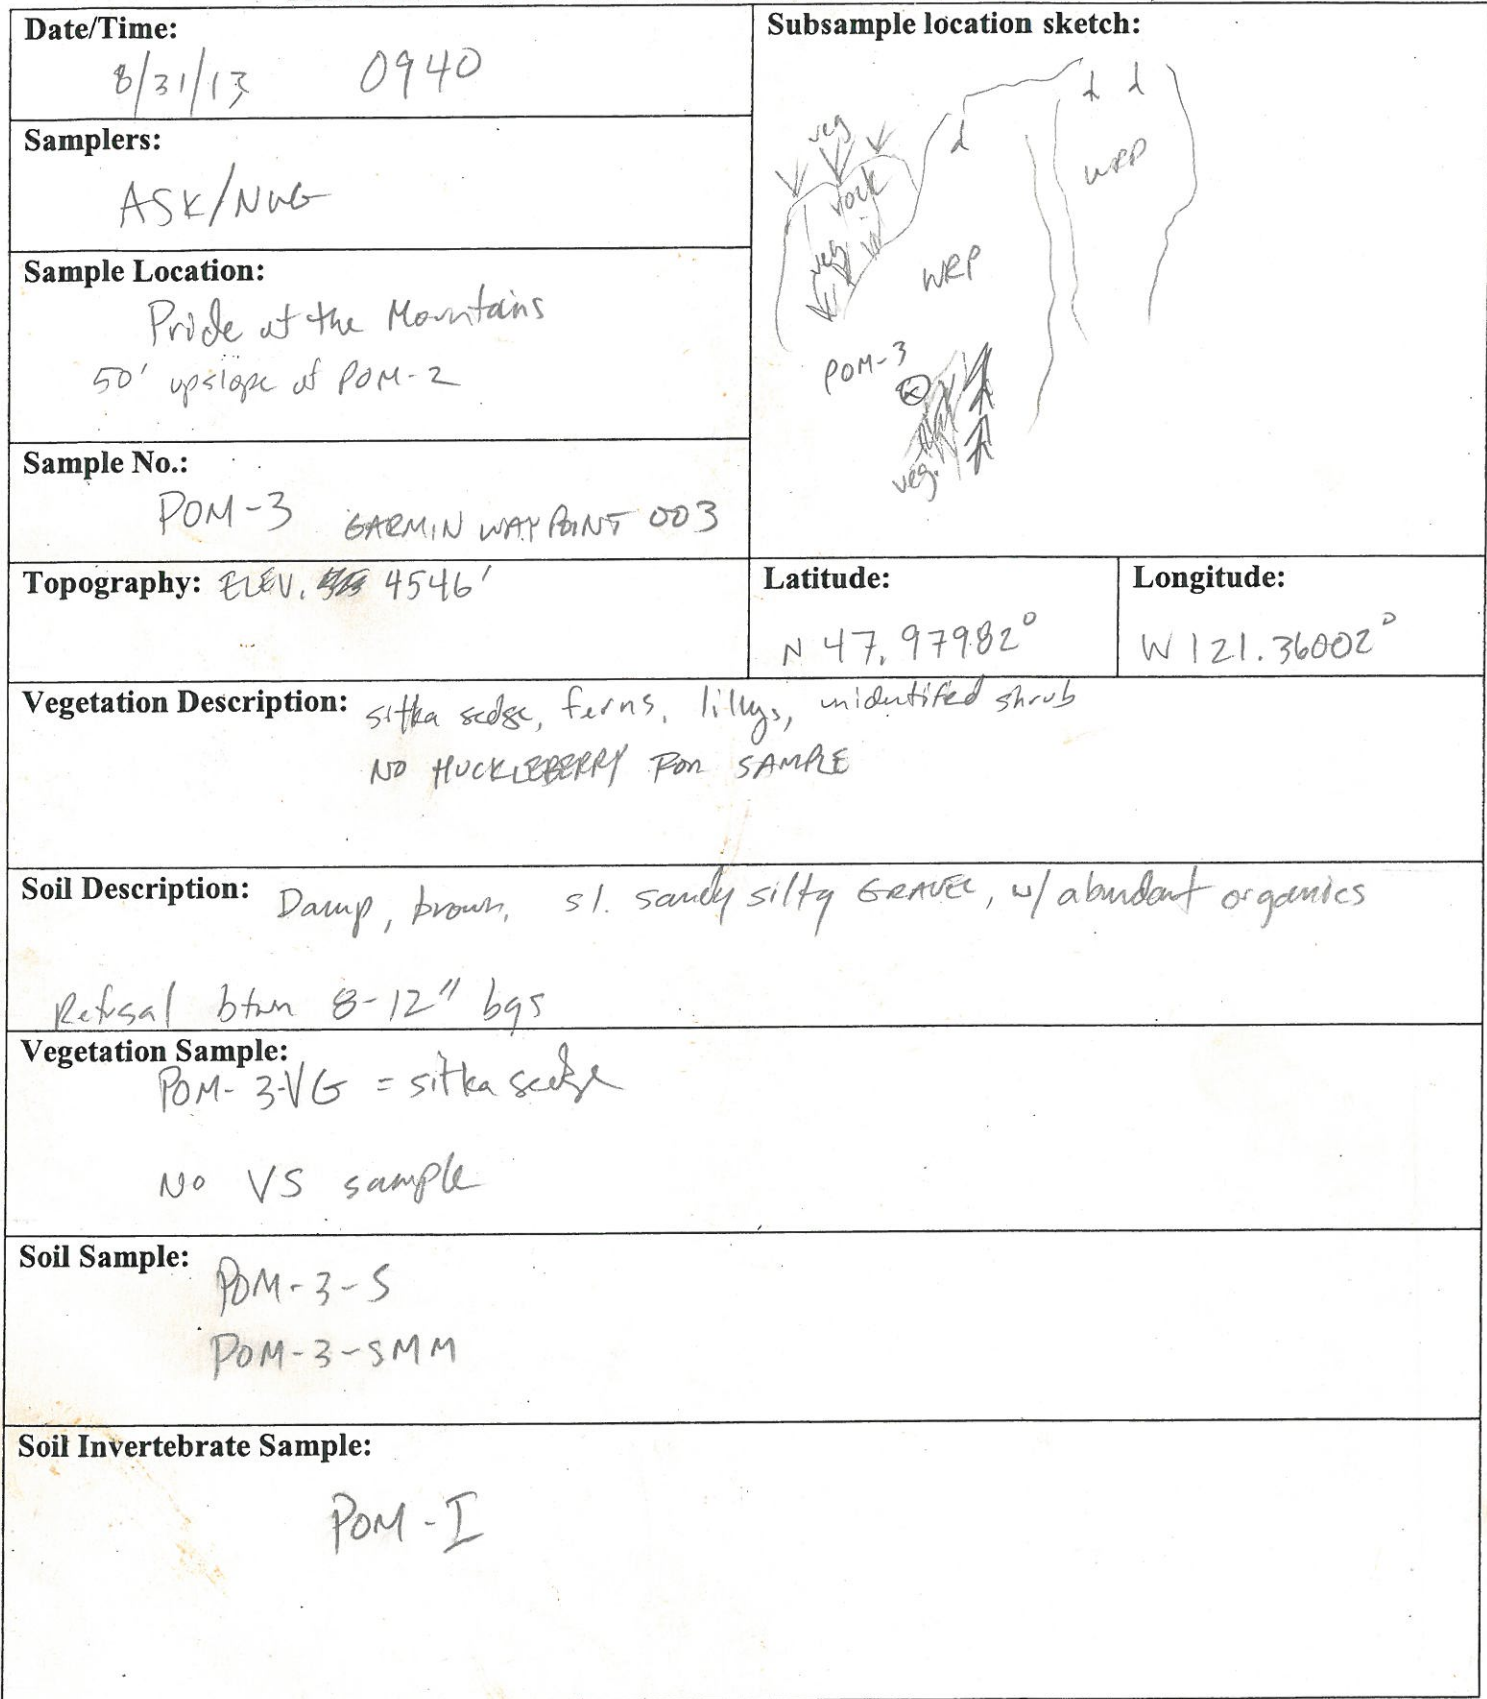 Date/Time:
8/31/13 0940
Samplers:
ASK/NWG
Sample Location:
Pride of the Mountains
50' upslope of POM-2
Sample No.:
POM-3 GARMIN WAYPOINT 003
Subsample location sketch:
veg
rock
veg
d
d d
WRP
WRP
POM-3
veg.
Topography: ELEV. 4546'
Latitude:
N 47.97982°
Longitude:
W 121.36002°
Vegetation Description: sitka sedge, ferns, lillys, unidentified shrub
NO HUCKLEBERRY FOR SAMPLE
Soil Description: Damp, brown, sl. sandy silty GRAVEL, w/ abundant organics
Refusal btwn 8-12" bgs
Vegetation Sample:
POM-3-VG = sitka sedge
No VS sample
Soil Sample:
POM-3-S
POM-3-SMM
Soil Invertebrate Sample:
POM-I